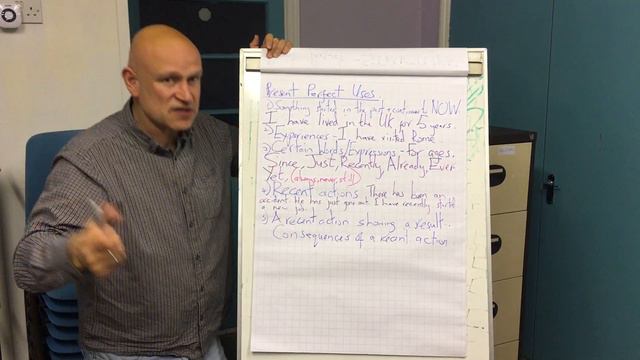 Present Perfect Uses
1) Something started in the past + continues NOW
I have lived in the UK for 5 years.
2) Experiences - I have visited Rome
3) Certain Words/Expressions - For ages,
Since, Just, Recently, Already, Ever
Yet, (always, never, still)
4) Recent actions There has been an
accident. He has just gone out. I have recently started
a new job
5) A recent action showing a result..
Consequences of a recent action